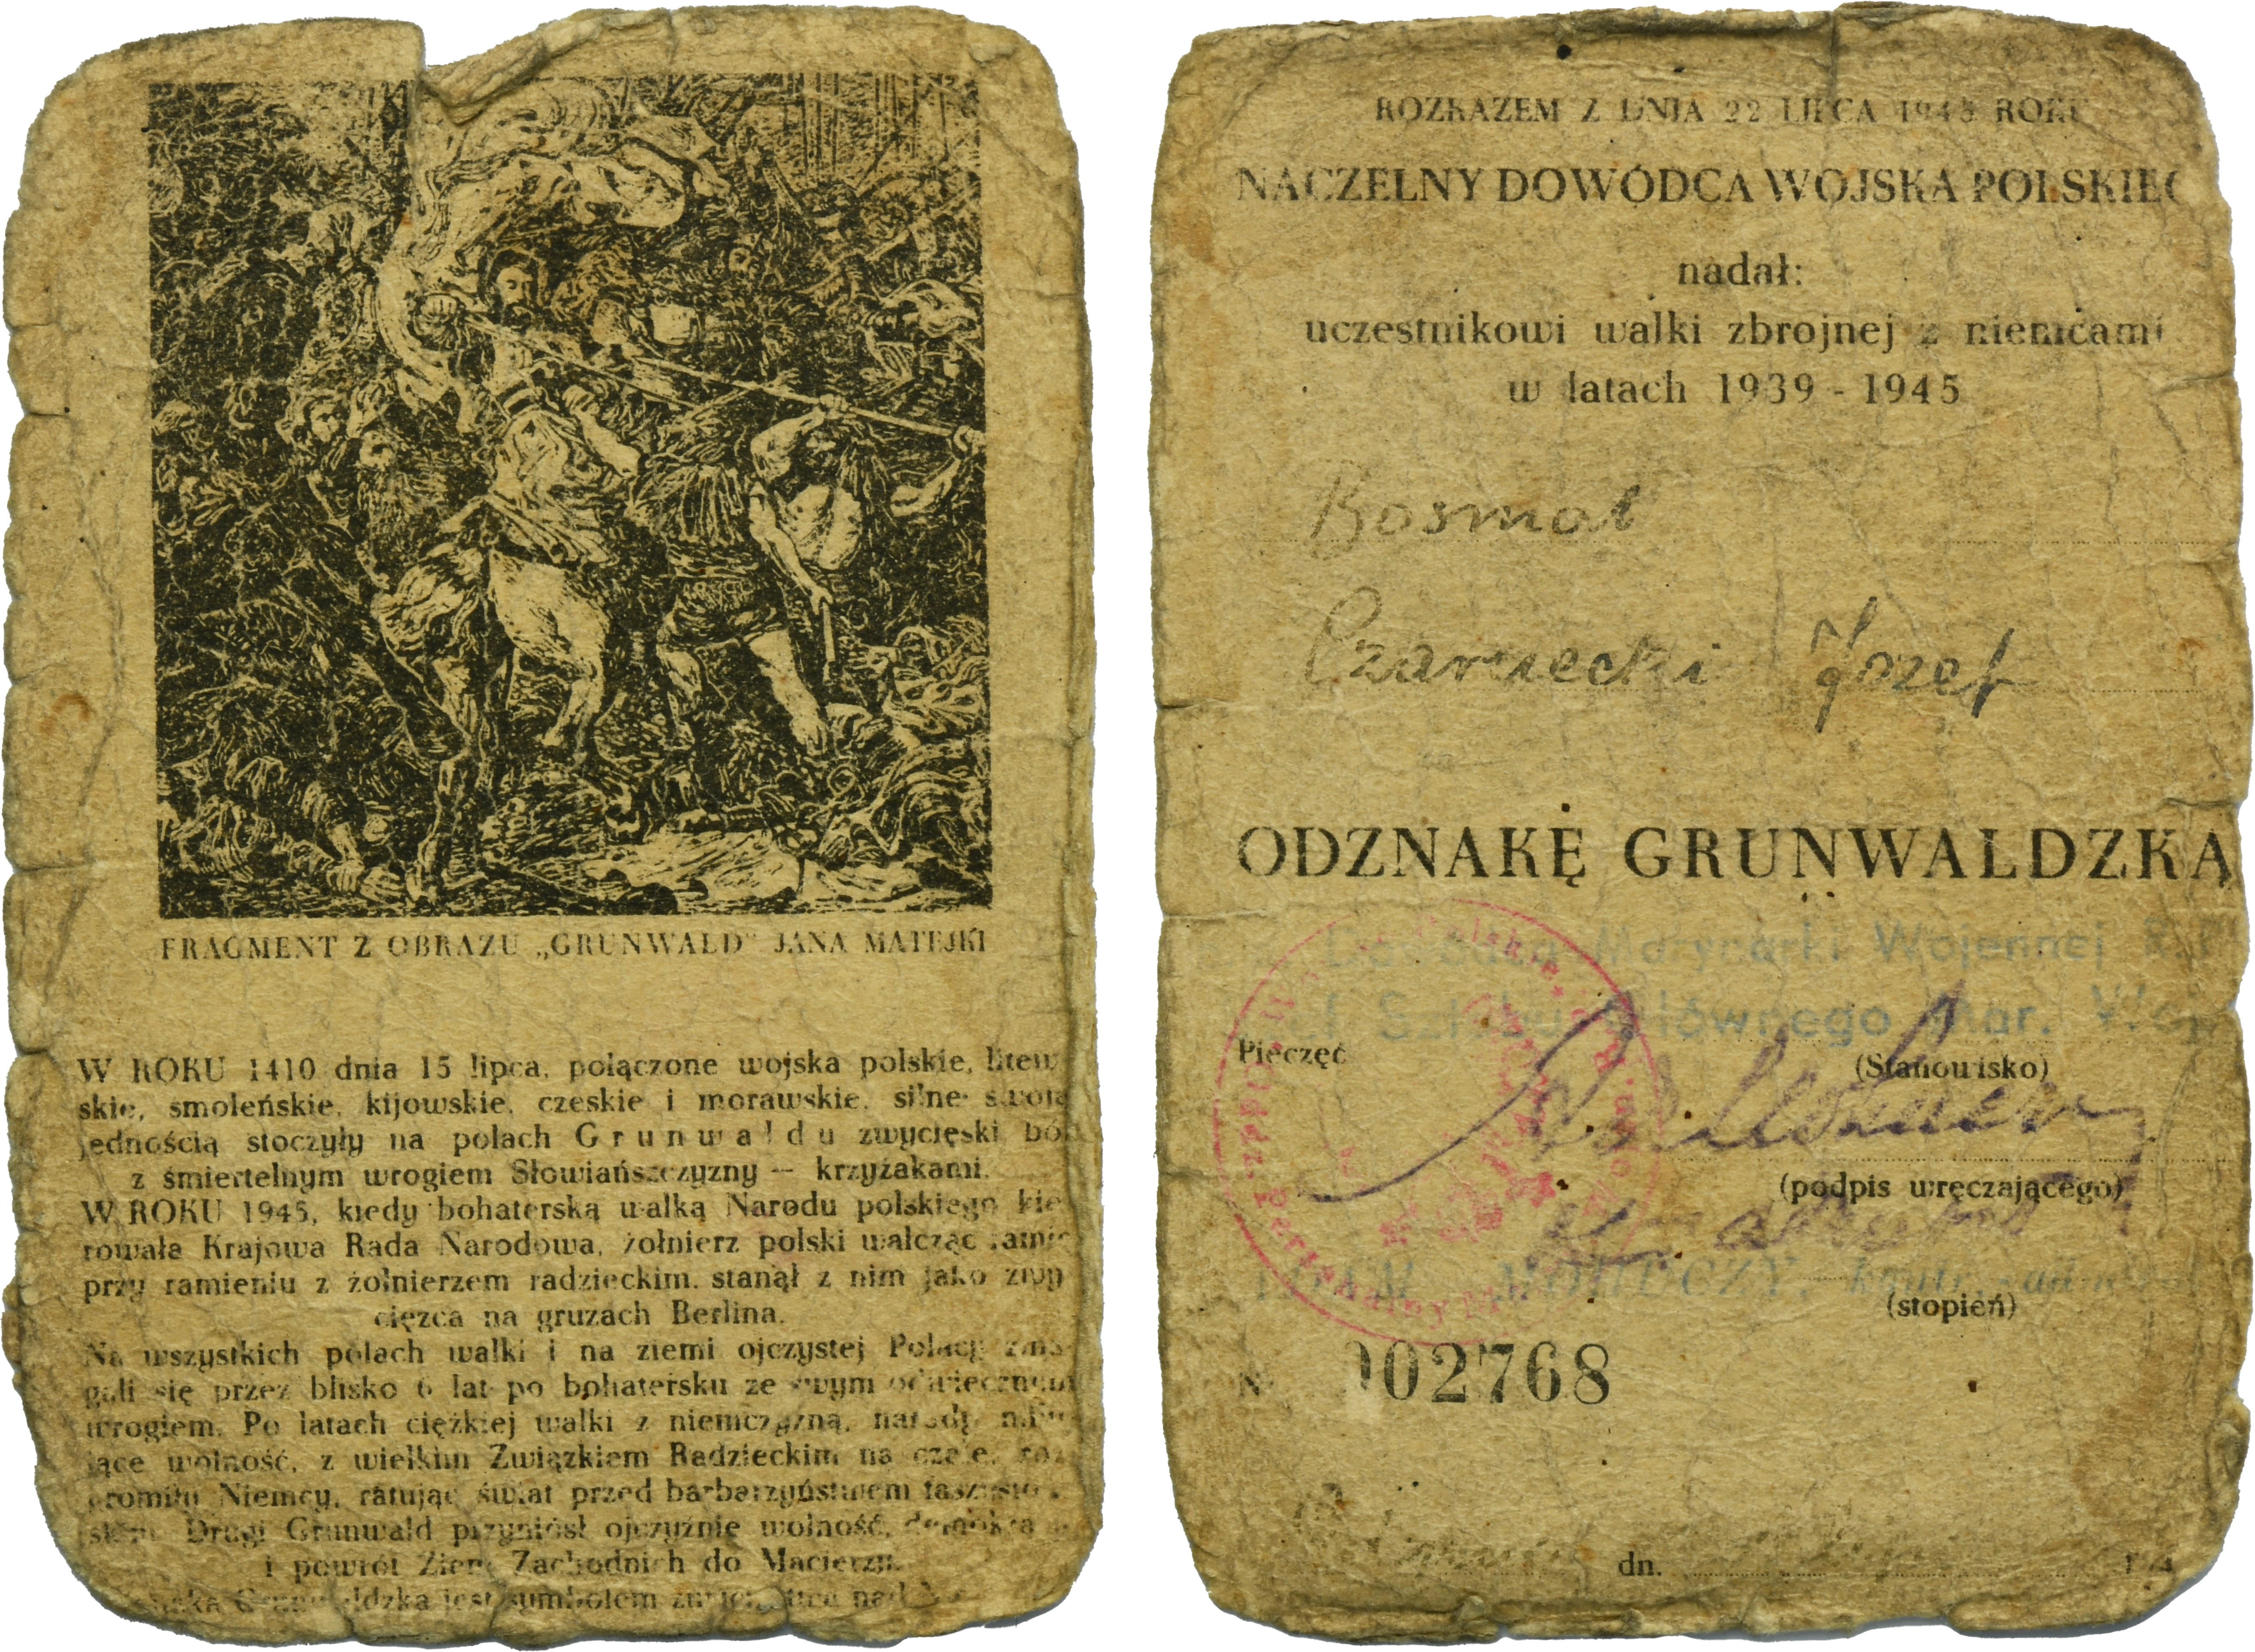 FRAGMENT Z OBRAZU „GRUNWALD" JANA MATEJKI
W ROKU 1410 dnia 15 lipca, połączone wojska polskie, litew
skie, smoleńskie, kijowskie, czeskie i morawskie, silne swoją
jednością stoczyły na polach Grunwaldu zwycięski bój
z śmiertelnym wrogiem Słowiańszczyzny — krzyżakami.
W ROKU 1945, kiedy bohaterską walką Narodu polskiego kie
rowała Krajowa Rada Narodowa, żołnierz polski walcząc ramię
przy ramieniu z żołnierzem radzieckim, stanął z nim jako zwy
cięzca na gruzach Berlina.
Na wszystkich polach walki i na ziemi ojczystej Polacy zma
gali się przez blisko 6 lat po bohatersku ze swym odwiecznym
wrogiem. Po latach ciężkiej walki z niemczyzną, narody miłu
jące wolność, z wielkim Związkiem Radzieckim na czele, roz
gromiły Niemcy, ratując świat przed barbarzyństwem faszystow
skim. Drugi Grunwald przyniósł ojczyźnie wolność, demokra
i powrót Ziem Zachodnich do Macierzy.
Grunwaldzka jest symbolem zwycięstwa nad
ROZKAZEM Z DNIA 22 LIPCA 1945 ROKU
NACZELNY DOWÓDCA WOJSKA POLSKIEG
nadał:
uczestnikowi walki zbrojnej z niemcami
w latach 1939 - 1945
Bosmat
Czarnecki Józef
ODZNAKĘ GRUNWALDZKĄ
Dowódca Marynarki Wojennej R.P.
Szef Sztabu Głównego Mar. Woj
Pieczęć
(Stanowisko)
(podpis wręczającego)
ADAM MOHUCZY, kontr-admirał
(stopień)
N 002768
dn. 194